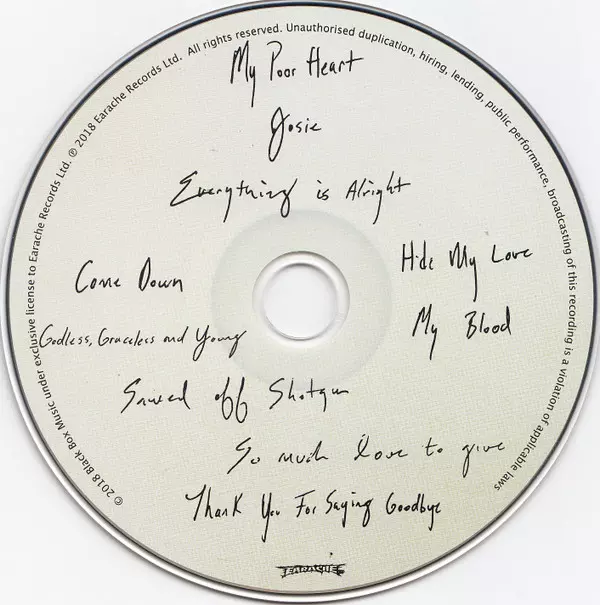 © 2018 Black Box Music under exclusive license to Earache Records Ltd. ℗ 2018 Earache Records Ltd. All rights reserved. Unauthorised duplication, hiring, lending, public performance, broadcasting of this recording is a violation of applicable laws
My Poor Heart
Josie
Everything is Alright
Come Down
Hide My Love
Godless, Graceless and Young
My Blood
Sawed off Shotgun
So much love to give
Thank You For Saying Goodbye
EARACHE